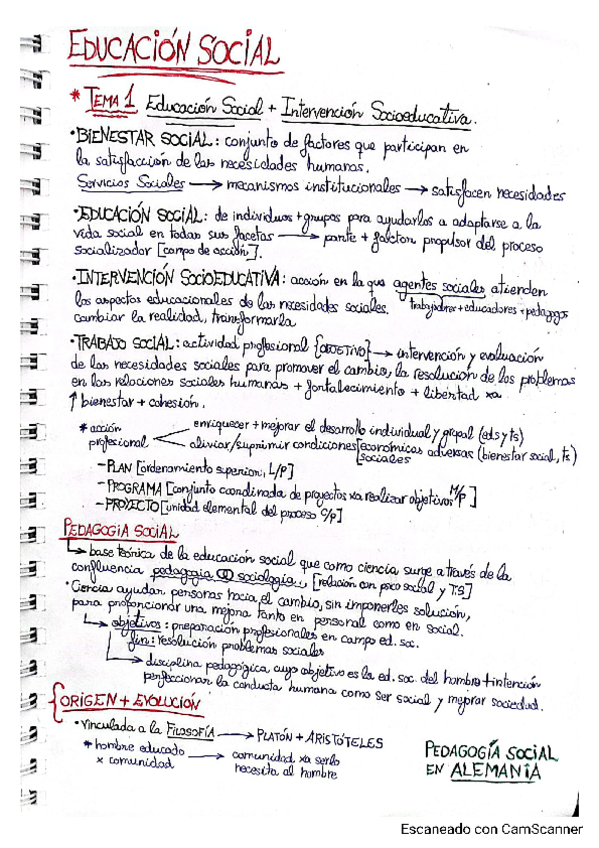 EDUCACIÓN SOCIAL
* TEMA 1 Educación Social + Intervención Socioeducativa.
• BIENESTAR SOCIAL: conjunto de factores que participan en
la satisfacción de las necesidades humanas.
Servicios Sociales → mecanismos institucionales → satisfacen necesidades
• EDUCACIÓN SOCIAL: de individuos + grupos para ayudarlos a adaptarse a la
vida social en todas sus facetas → parte + factor propulsor del proceso
socializador [campo de acción].
• INTERVENCIÓN SOCIOEDUCATIVA: acción en la que agentes sociales atienden
los aspectos educacionales de las necesidades sociales. trabajadores + educadores + pedagogos
cambiar la realidad, transformarla
• TRABAJO SOCIAL: actividad profesional {OBJETIVO} → intervención y evaluación
de las necesidades sociales para promover el cambio, la resolución de los problemas
en las relaciones sociales humanas + fortalecimiento + libertad xa
↑ bienestar + cohesión.
* acción profesional
enriquecer + mejorar el desarrollo individual y grupal (eds y ts)
aliviar/suprimir condiciones [económicas sociales adversas (bienestar social, ts)
- PLAN [ordenamiento superior, L/P]
- PROGRAMA [conjunto coordinado de proyectos xa realizar objetivos M/P]
- PROYECTO [unidad elemental del proceso C/P]
PEDAGOGÍA SOCIAL
↳ base teórica de la educación social que como ciencia surge a través de la
confluencia pedagogía sociología. [relación con psico social y T.S]
• Ciencia ayudar personas hacia el cambio, sin imponerles solución,
para proporcionar una mejora tanto en personal como en social.
↳ objetivos: preparación profesionales en campo ed. soc.
fin: resolución problemas sociales
→ disciplina pedagógica cuyo objetivo es la ed. soc. del hombre + intención
perfeccionar la conducta humana como ser social y mejorar sociedad.
{ORIGEN + EVOLUCIÓN
• vinculada a la FILOSOFÍA → PLATÓN + ARISTÓTELES
* hombre educado x comunidad → comunidad xa serlo necesita al hombre
PEDAGOGÍA SOCIAL
EN ALEMANIA
Escaneado con CamScanner